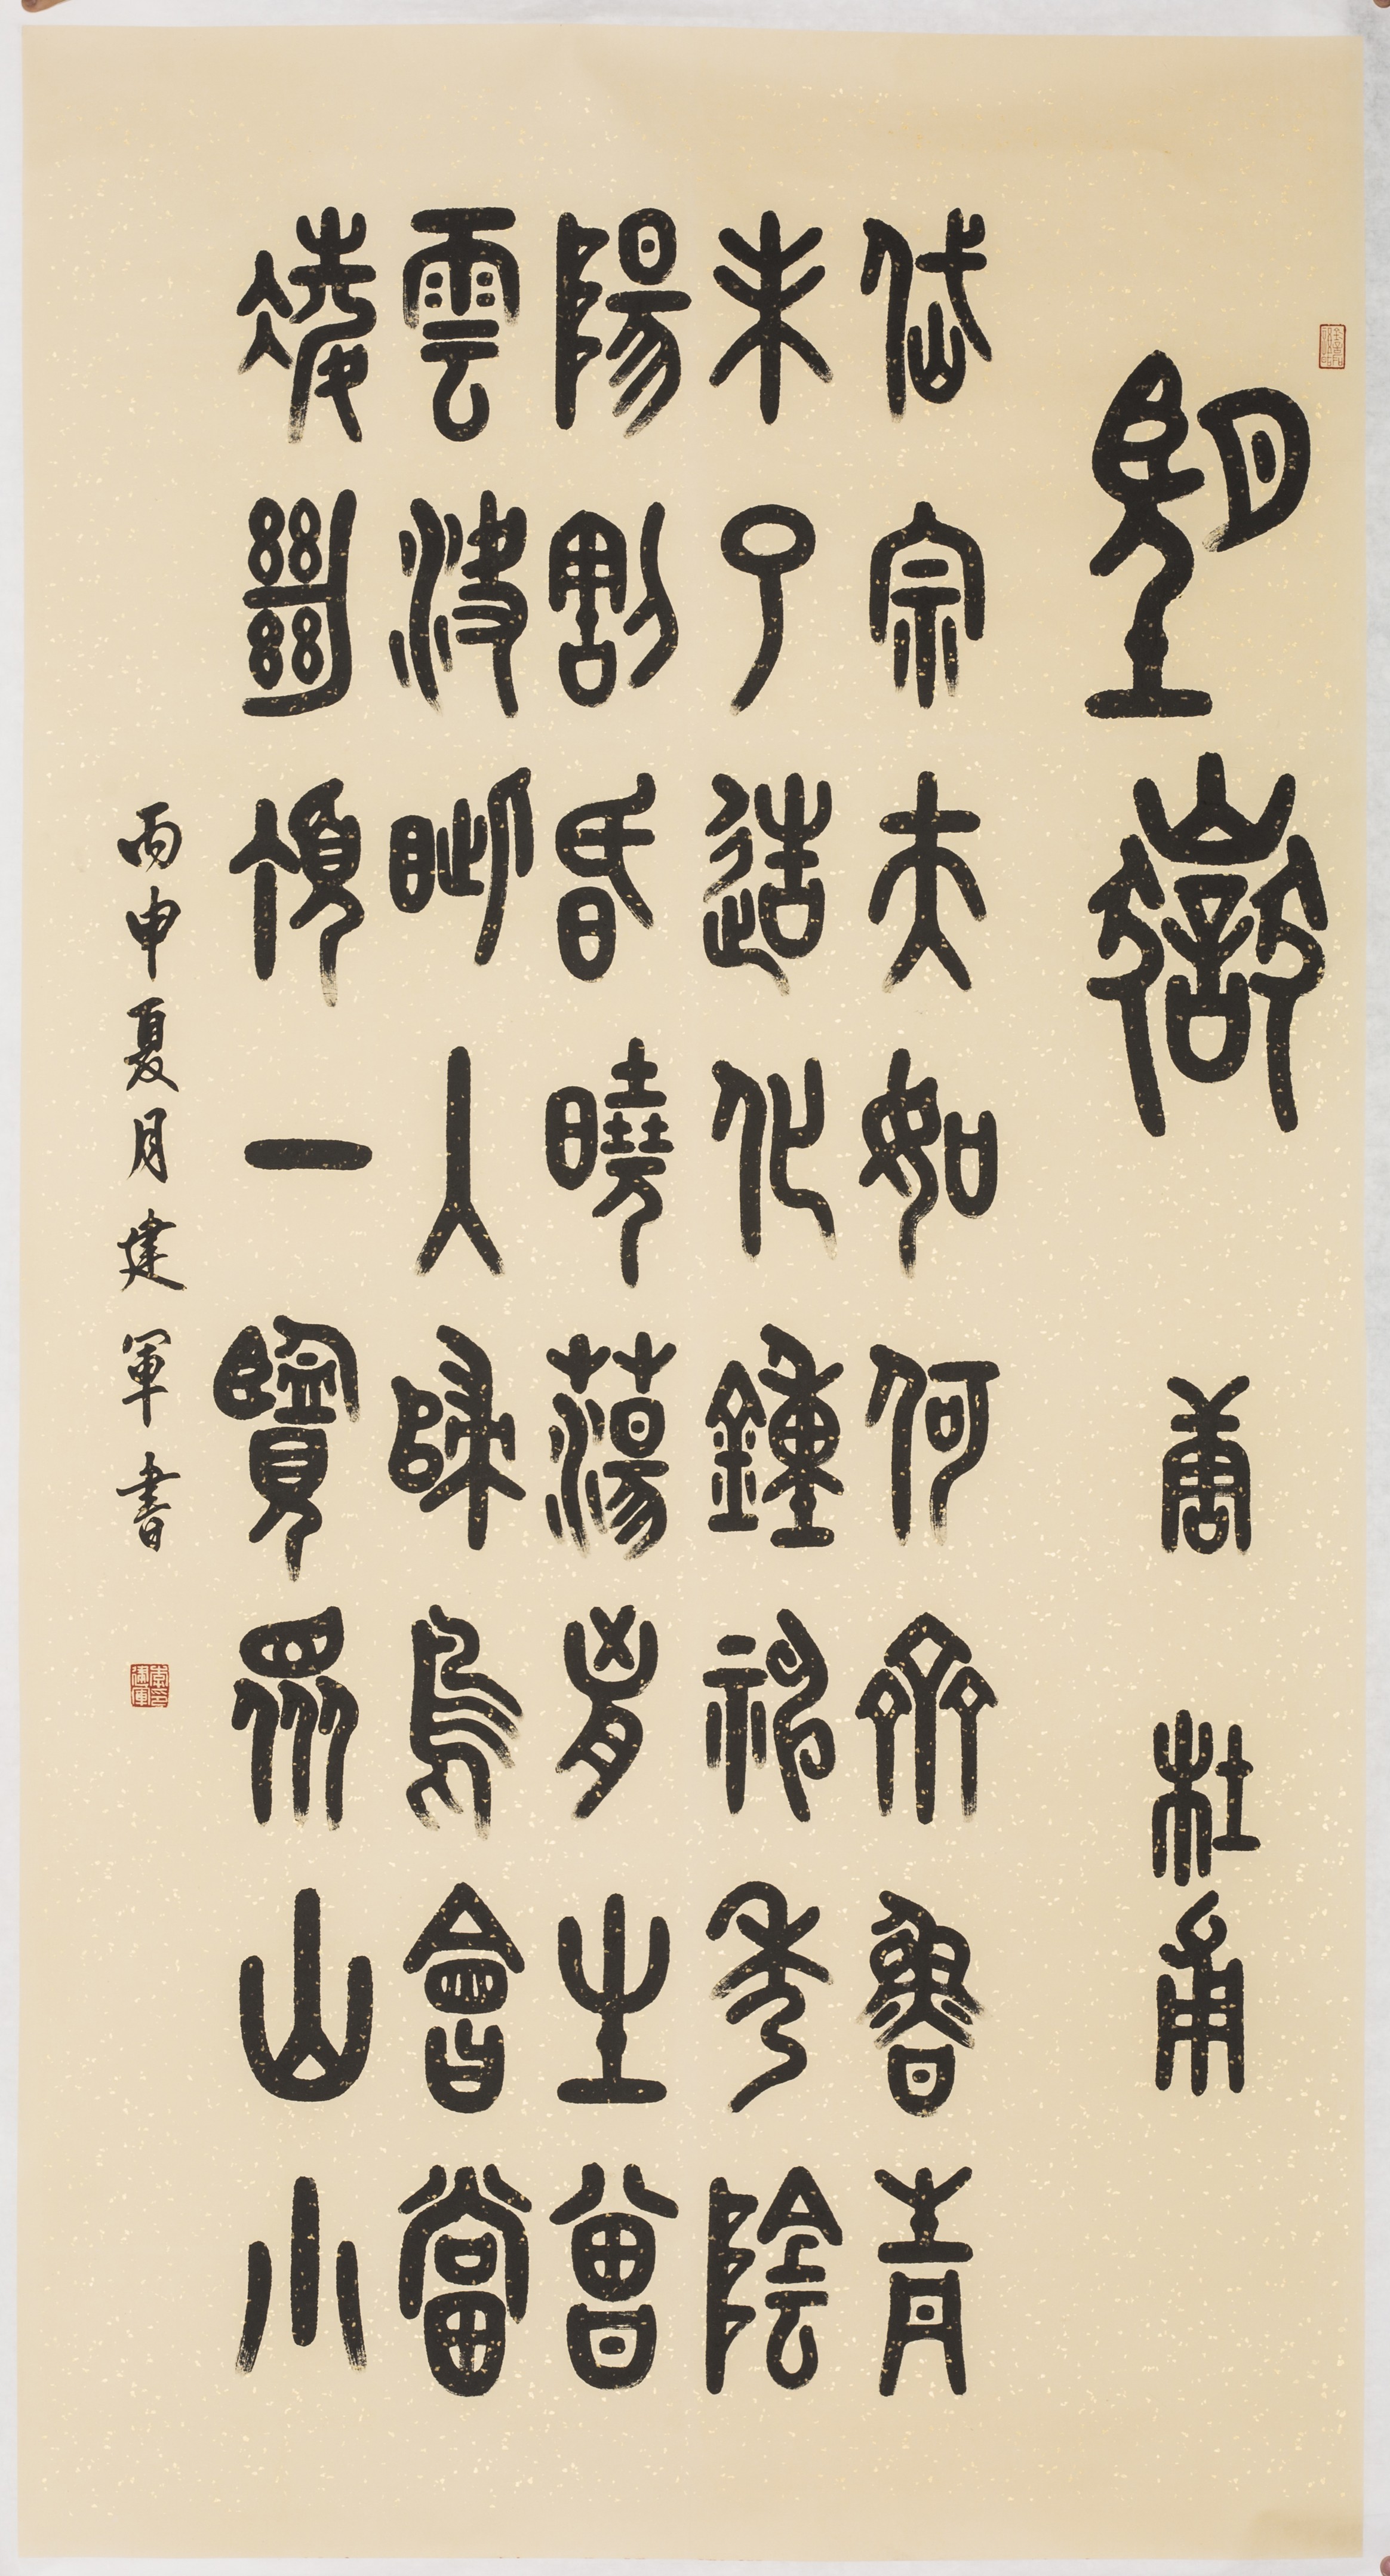 望嶽 唐 杜甫
岱宗夫如何齊魯青
未了造化鍾神秀陰
陽割昏曉蕩胷生曾
雲決眥入歸鳥會當
凌絕頂一覽眾山小
丙申夏月建軍書